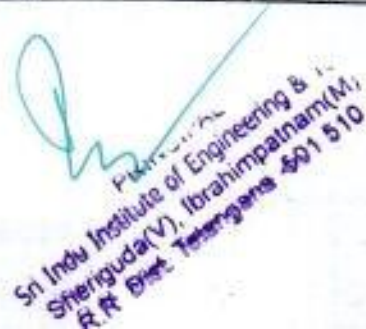 PRINCIPAL
Sri Indu Institute of Engineering &
Sheriguda(V), Ibrahimpatnam(M)
R.R Dist. Telangana -501 510